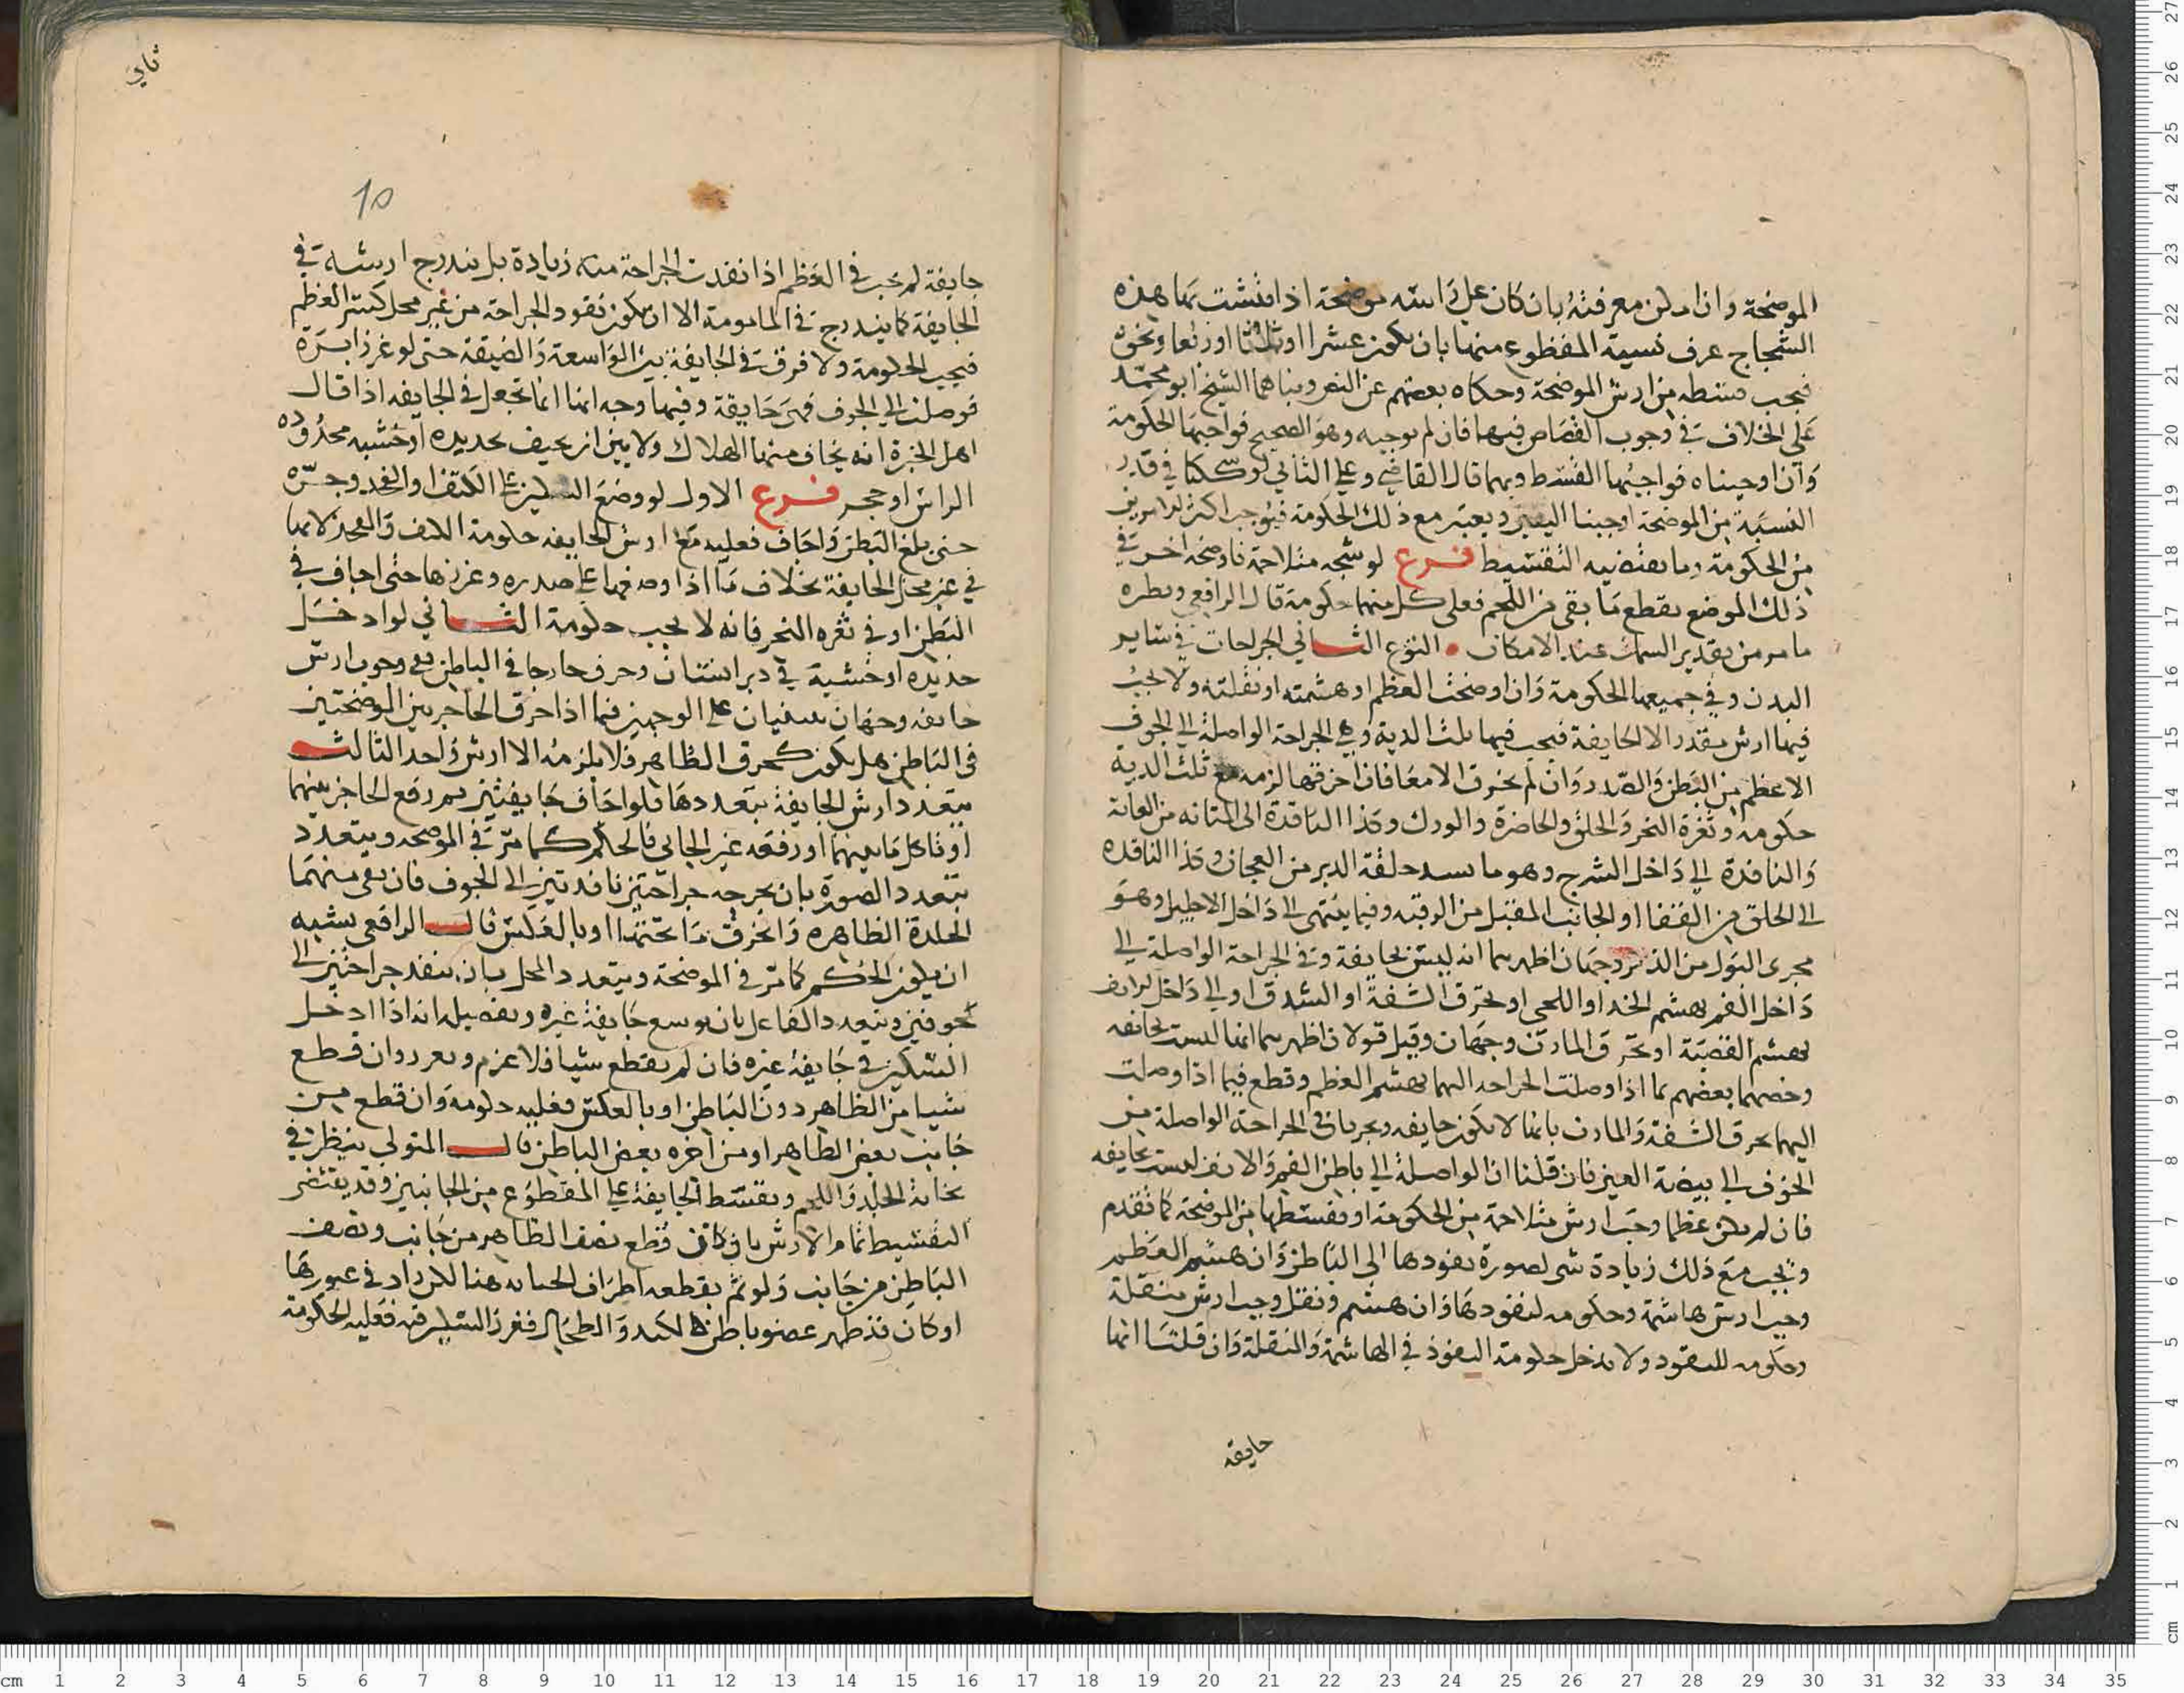 الموضحة وان امكن معرفته بان كان على راسه موضحة اذا قيست بها هذه
الشجاج عرف نسبة المقطوع منها بان يكون عشرا او ثلثا او ربعا ونحوه
فيجب قسطه من ارش الموضحة وحكاه بعضهم عن النص وبناهما الشيخ ابو محمد
على الخلاف في وجوب القصاص فيها فان لم نوجبه وهو الصحيح فواجبها الحكومة
وان اوجبناه فواجبها القسط وبهما قال القاضي وعلى الثاني لو شككنا في قدر
النسبة من الموضحة اوجبنا اليقين ويعتبر مع ذلك الحكومة فيوجب اكثر الامرين
من الحكومة وما يقتضيه التقسيط فرع لو شجه متلاحمة فاوضحه اخر في
ذلك الموضع بقطع ما بقي من اللحم فعلى كل منهما حكومة قال الرافعي ونظره
ما مر من تقدير السمك عند الامكان النوع الثاني الجراحات في ساير
البدن وفي جميعها الحكومة وان اوضحت العظم او هشمته او نقلته ولا يجب
فيها ارش مقدر الا الجايفة فيجب فيها ثلث الدية وهي الجراحة الواصلة الى الجوف
الاعظم من البطن والصدر وان لم يخرق الامعا فان خرقها لزمه مع ثلث الدية
حكومة وثغرة النحر والحلق والخاصرة والورك وكذا النافذة الى المثانة من العانة
والنافذة الى داخل الشرج وهو ما يسد حلقة الدبر من العجان وكذا النافذة
الى الحلق من القفا او الجانب المقبل من الرقبة وفيما ينتهي الى داخل الاحليل وهو
مجرى البول من الذكر وجهان اظهرهما انه ليس بجايفة وفي الجراحة الواصلة الى
داخل الفم بهشم الخد او اللحى او بخرق الشفة او الشدق او الى داخل الانف
بهشم القصبة او بخرق المارن وجهان وقيل قولان اظهرهما انها ليست بجايفه
وخصهما بعضهم بما اذا وصلت الجراحة اليهما بهشم العظم وقطع فيما اذا وصلت
اليهما بخرق الشفة والمارن بانها لا تكون جايفه ويجريان في الجراحة الواصلة من
الجوف الى بيضة العين فان قلنا ان الواصلة الى باطن الفم والانف ليست بجايفه
فان لم يكن عظما وجب ارش متلاحمة من الحكومة او بقسطها من الموضحة كما تقدم
ويجب مع ذلك زيادة شي لصورة نفوذها الى الباطن وان هشم العظم
وجب ارش هاشمة وحكومه لنفوذها وان هشم ونقل وجب ارش منقلة
وحكومه للنفوذ ولا تدخل حكومة النفوذ في الهاشمة والمنقلة وان قلنا انها
جايفة
ثاني
10
جايفة لم يجب في العظم اذا نفذت الجراحة منه زيادة بل يندرج ارشه في
الجايفة كما يندرج في المامومة الا ان يكون نفوذ الجراحة من غير محل كسر العظم
فيجب الحكومة ولا فرق في الجايفة بين الواسعة والضيقة حتى لو غرز ابرة
فوصلت الى الجوف فهي جايفة وفيها وجه انها انما تجعل في الجايفه اذا قال
اهل الخبرة انه يخاف منها الهلاك ولا بين ان يجيف بحديده او خشبه محدوده
الراس او حجر فرع الاول لو وضع السكين على الكتف او الفخد وجره
حتى بلغ البطن واجاف فعليه مع ارش الجايفه حكومة الكتف والفخد لانها
في غير محل الجايفة بخلاف ما اذا وضعها على صدره وغرزها حتى اجاف في
البطن او في ثغره النحر فانه لا يجب حكومة الثاني لو ادخل
حديده او خشبة في دبر انسان وخرق حاجزا في الباطن ففي وجوب ارش
جايفه وجهان مبنيان على الوجهين فيما اذا خرق الحاجز بين الموضحتين
في الباطن هل يكون كخرق الظاهر فلا يلزمه الا ارش واحد الثالث
يتعدد ارش الجايفة بتعددها فلو اجاف جايفتين ثم رفع الحاجز بينهما
او تاكل ما بينهما او رفعه غير الجاني فالحكم كما مر في الموضحه ويتعدد
بتعدد الصورة بان يجرحه جراحتين نافذتين الى الجوف فان بقي بينهما
الجلدة الظاهره وانخرق ما تحتها او بالعكس قال الرافعي يشبه
ان يكون الحكم كما مر في الموضحة ويتعدد المحل بان ينفذ جراحتين الى
جوفين ويتعدد الفاعل بان يوسع جايفة غيره وتفصيله انه اذا ادخل
السكين في جايفة غيره فان لم يقطع شيا فلا غرم ويعزر وان قطع
شيا من الظاهر دون الباطن او بالعكس فعليه حكومه وان قطع من
جانب بعض الظاهر او من اخره بعض الباطن قال المتولي ينظر في
ثخانة الجلد واللحم ويقسط الجايفة على المقطوع من الجانبين وقد يقتضي
التقسيط تمام الارش بان كان قطع نصف الظاهر من جانب ونصف
الباطن من جانب ولو لم يقطعه اطراف الجنايه هنا لكن زاد في غورها
او كان قد ظهر عضو باطن كالكبد والطحال فغرز السكين فيه فعليه الحكومة